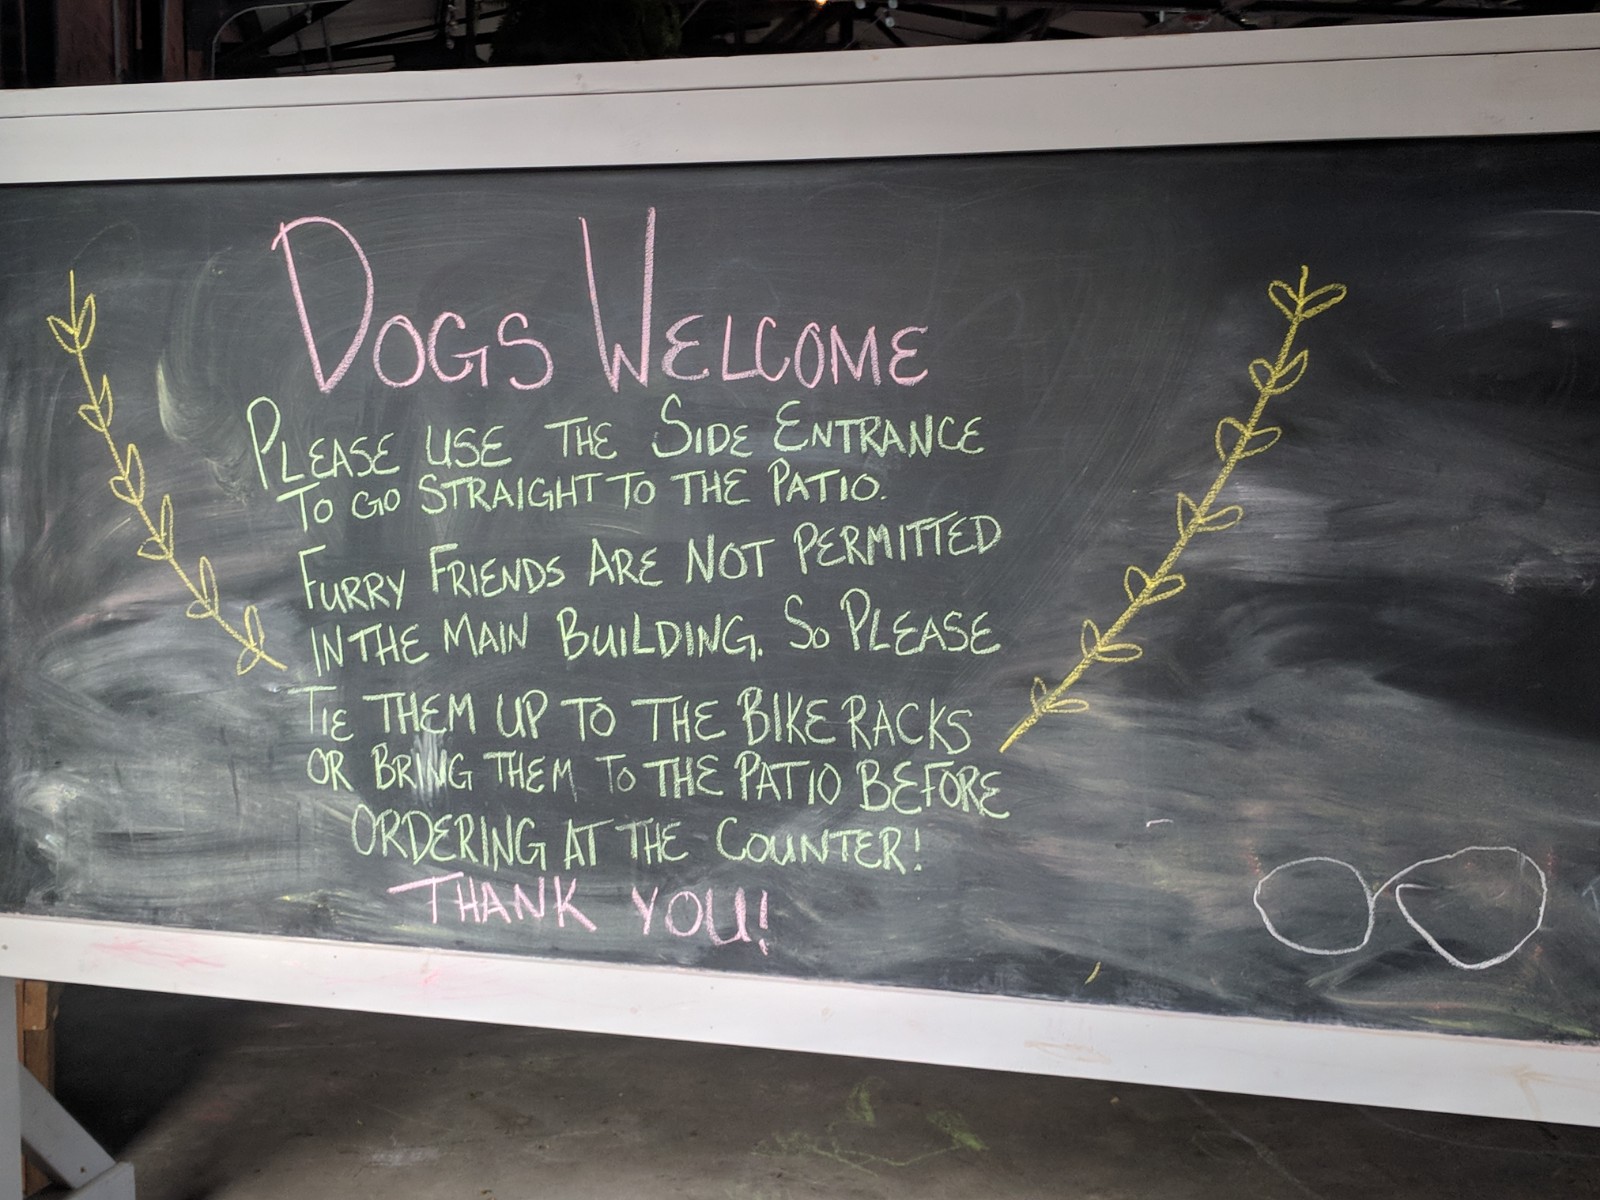 DOGS WELCOME
PLEASE USE THE SIDE ENTRANCE
TO GO STRAIGHT TO THE PATIO.
FURRY FRIENDS ARE NOT PERMITTED
IN THE MAIN BUILDING. SO PLEASE
TIE THEM UP TO THE BIKE RACKS
OR BRING THEM TO THE PATIO BEFORE
ORDERING AT THE COUNTER!
THANK YOU!